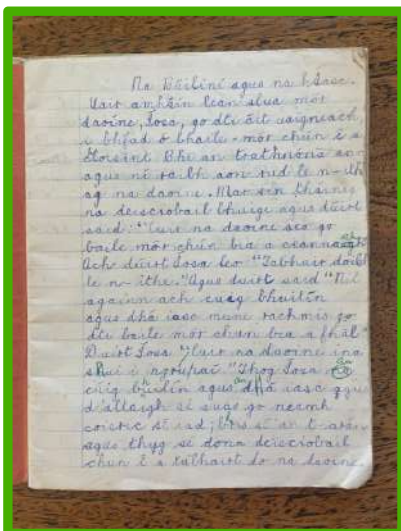 Na Builíní agus na hIasc.
Uair amháin lean slua mór
daoine Íosa, go dtí áit uaigneach
i bhfad ó bhaile-mór chun é a
éloisint Bhí an tráthnóna ann
agus ní raibh aon rud le n-ith
ag na daoine. Mar sin tháinig
na deisciobail chuige agus dúirt
siad: "Cuir na daoine seo go
baile mór chun bia a
Ach dúirt Íosa leo "Tabhair
le n-ithe." Agus duirt siad "Níl
againn ach cúig bhuilín
agus dhá iasc mura rachmis go
dtí baile mór chun bia a fháil"
Duirt Íosa "Cuir na daoine ina
suí i ngrúpaí" Thóg Íosa
cúig builín agus dhá iasc agus
d'allaigh sé suas go neamh
coisric sé iad, bris sé an t-arán
agus thug sé dona deisciobail
chun é a tabhairt do na daoine